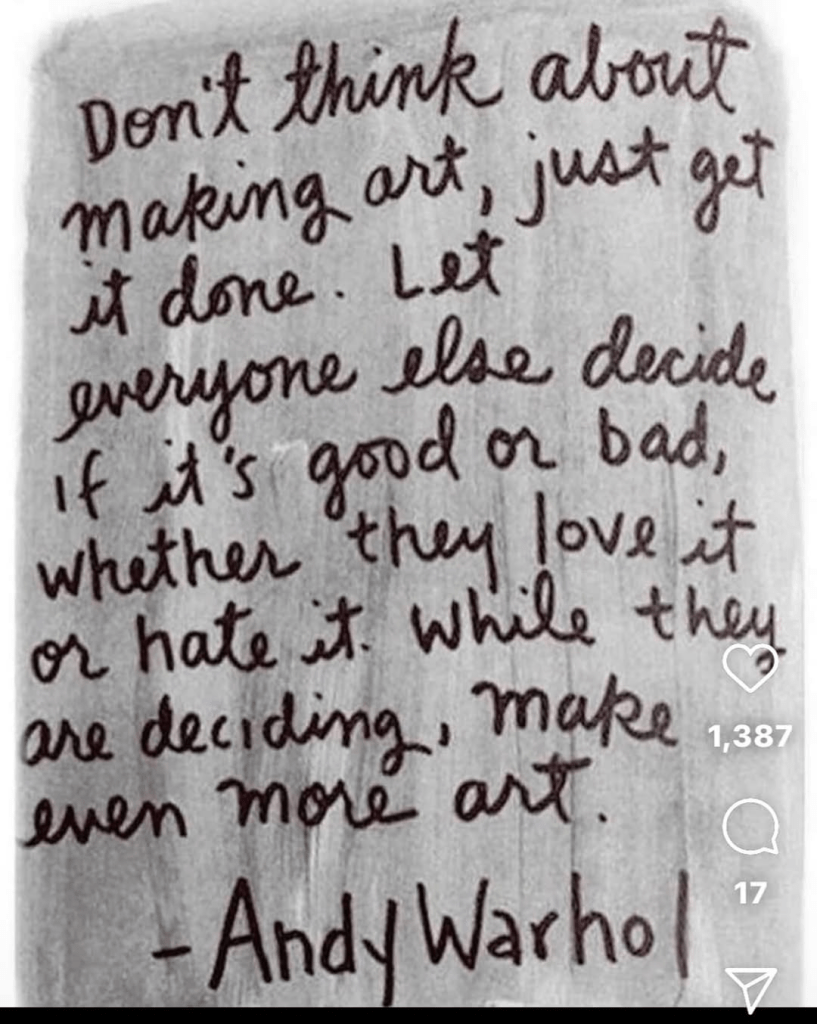 Don't think about
making art, just get
it done. Let
everyone else decide
if it's good or bad,
whether they love it
or hate it. While they
are deciding, make
even more art.
- Andy Warhol
1,387
17